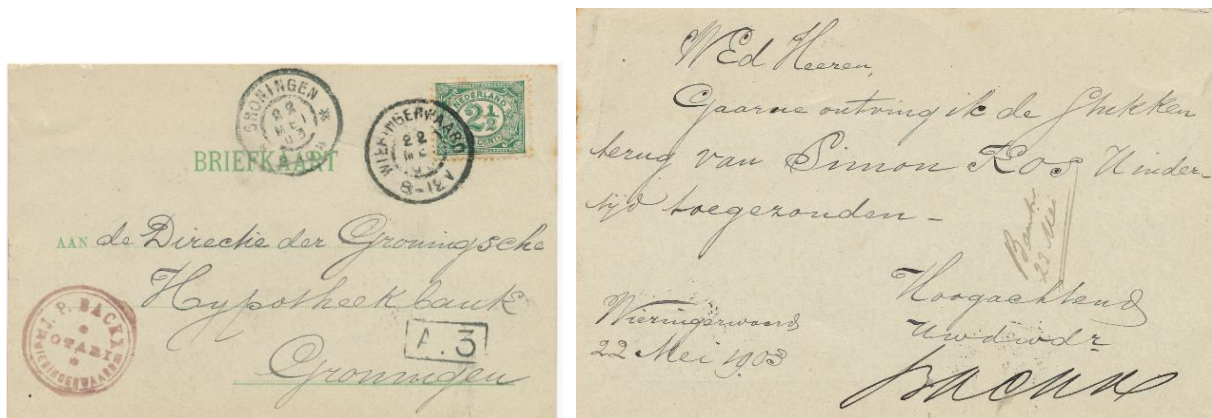 GRONINGEN
22
MEI
03
NEDERLAND
2½
CENT
WIERINGERWAARD
22
MEI
8-12V
BRIEFKAART
AAN de Directie der Groningsche
Hypotheekbank
Groningen
A.3
J. P. BACKX
NOTARIS
WIERINGERWAARD
WEd Heeren,
Gaarne ontving ik de Stukken
terug van Simon Kos U inder-
tijd toegezonden -
22 Mei
Hoogachtend
Uwdwdr
Backx
Wieringerwaard
22 Mei 1903